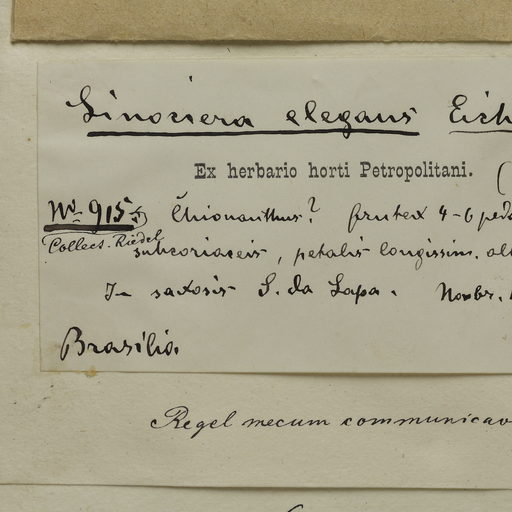 Linociera elegans Eich
Ex herbario horti Petropolitani. (
No. 915 Chionanthus? frutex 4-6 peda
Collect. Riedel
subcoriaceis, petalis longissim. al
In saxosis S. da Lapa. Novbr.
Brasilia
Regel mecum communicav